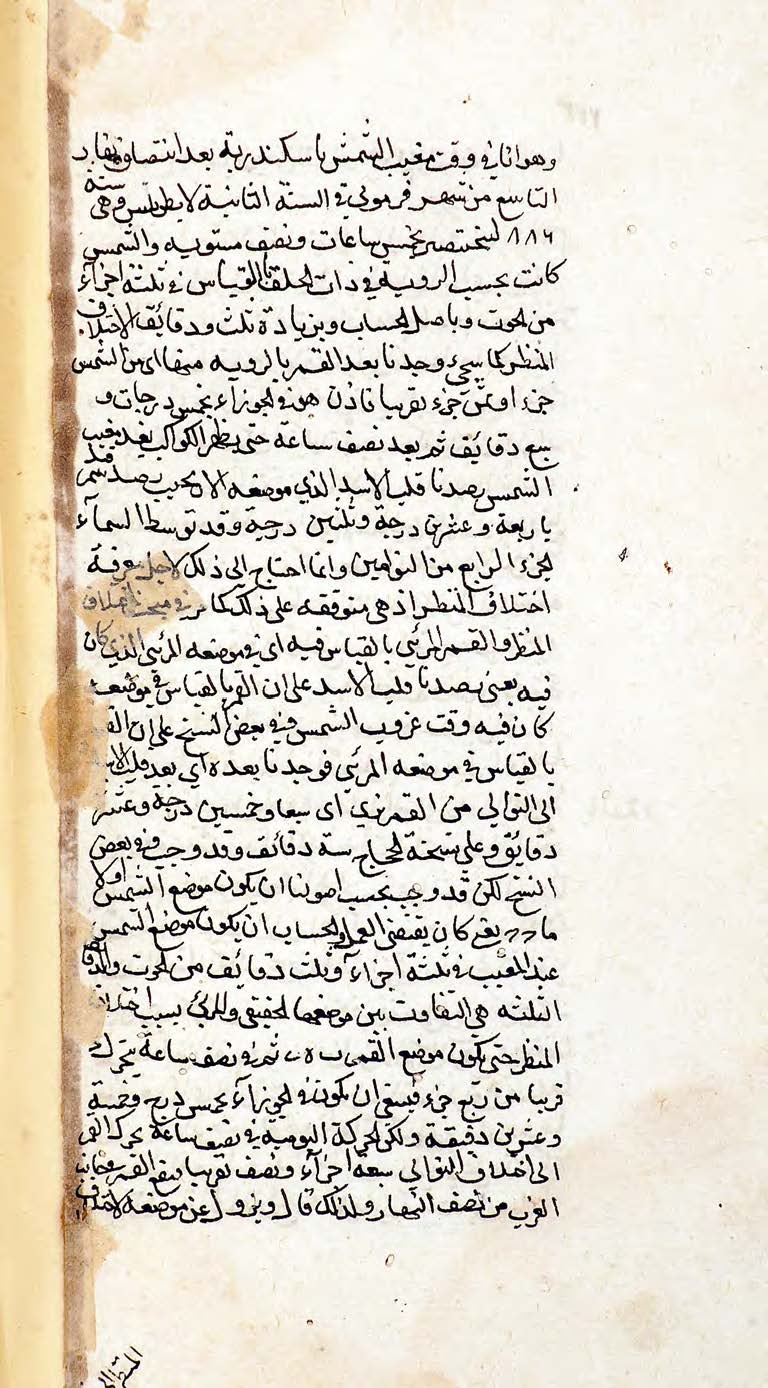 وهو انا في وقت مغيب الشمش باسكندرية بعد انتصاف نهار
التاسع من شهر فرموثي في السنة الثانية لابطونينس وهي سنة
٨٨٦ لبختنصر بخمس ساعات ونصف مستويه والشمس
كانت بحسب الرويه في ذات الحلق بالقياس في ثلثة اجزآء
من الحوت وباصل الحساب وبزيادة ثلث ودقائق الاختلاف
المنظر كما سيجيء وجدنا بعد القمر بالرويه منها اى من الشمس
جزء او ثمن جزء تقريبا فاذن هو في الجوزآء بخمس درجات و
سبع دقائق ثم بعد نصف ساعة حتى يظهر الكواكب بعد مغيب
الشمس رصدنا قلب الاسد الذي موضعه الان يجب رصد
باربعة وعشرين درجة وثلثين درجة وقد توسط السمآء
الجزء الرابع من التوامين وانما احتاج الى ذلك لاجل معرفة
اختلاف المنظر اذ هي متوقفه على ذلك كما مر في مبحث اختلاف
المنظر والقمر المرئي بالقياس فيه اى في موضعه المرئي الذي كان
فيه يعني رصدنا قلب الاسد على ان القمر بالقياس في موضعه
كان فيه وقت غروب الشمس وفي بعض النسخ على ان
بالقياس في موضعه المرئي فوجدنا بعده اى بعد قلب الاسد
الى التوالي من القمر نزي اى سبعا وخمسين درجة وعشر
دقايق وعلى نسخة الحجاج ستة دقائق وقد وجب وفي بعض
النسخ لكن قد وجب بحسب اصولنا ان يكون موضع الشمس اولا
يعني كان يقتضى العمل والحساب ان يكون موضع الشمس
عند المغيب في ثلثة اجزآء وثلث دقائق من الحوت والدقائق
الثلثه هي التفاوت بين موضعها الحقيقي والمرئى بسبب اختلاف
المنظر حتى يكون موضع القمر ثم في نصف ساعة يتحرك
قريبا من ربع جزء فينبغي ان يكون في الجوزآء بخمس درج وخمسة
وعشرين دقيقة ولكن الحركة اليومية في نصف ساعة يحرك القمر
الى اخلاف التوالي سبعة اجزآء ونصف تقريبا فيقع القمر في جانب
الغرب من نصف النهار ولذلك قال ويزول عن موضعه لاختلاف
المنظر الى